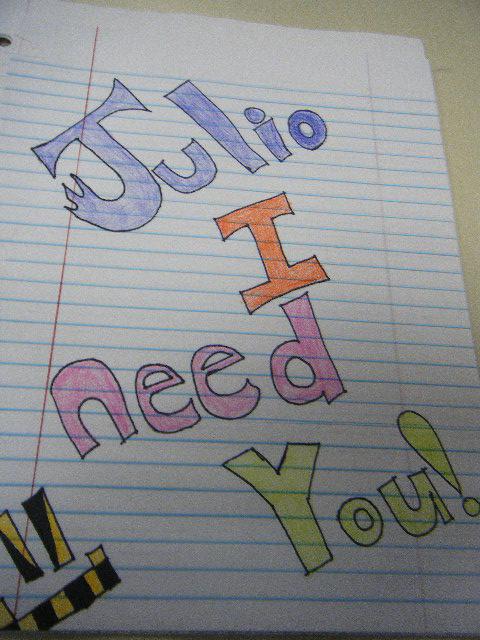 Julio
I
need
You!